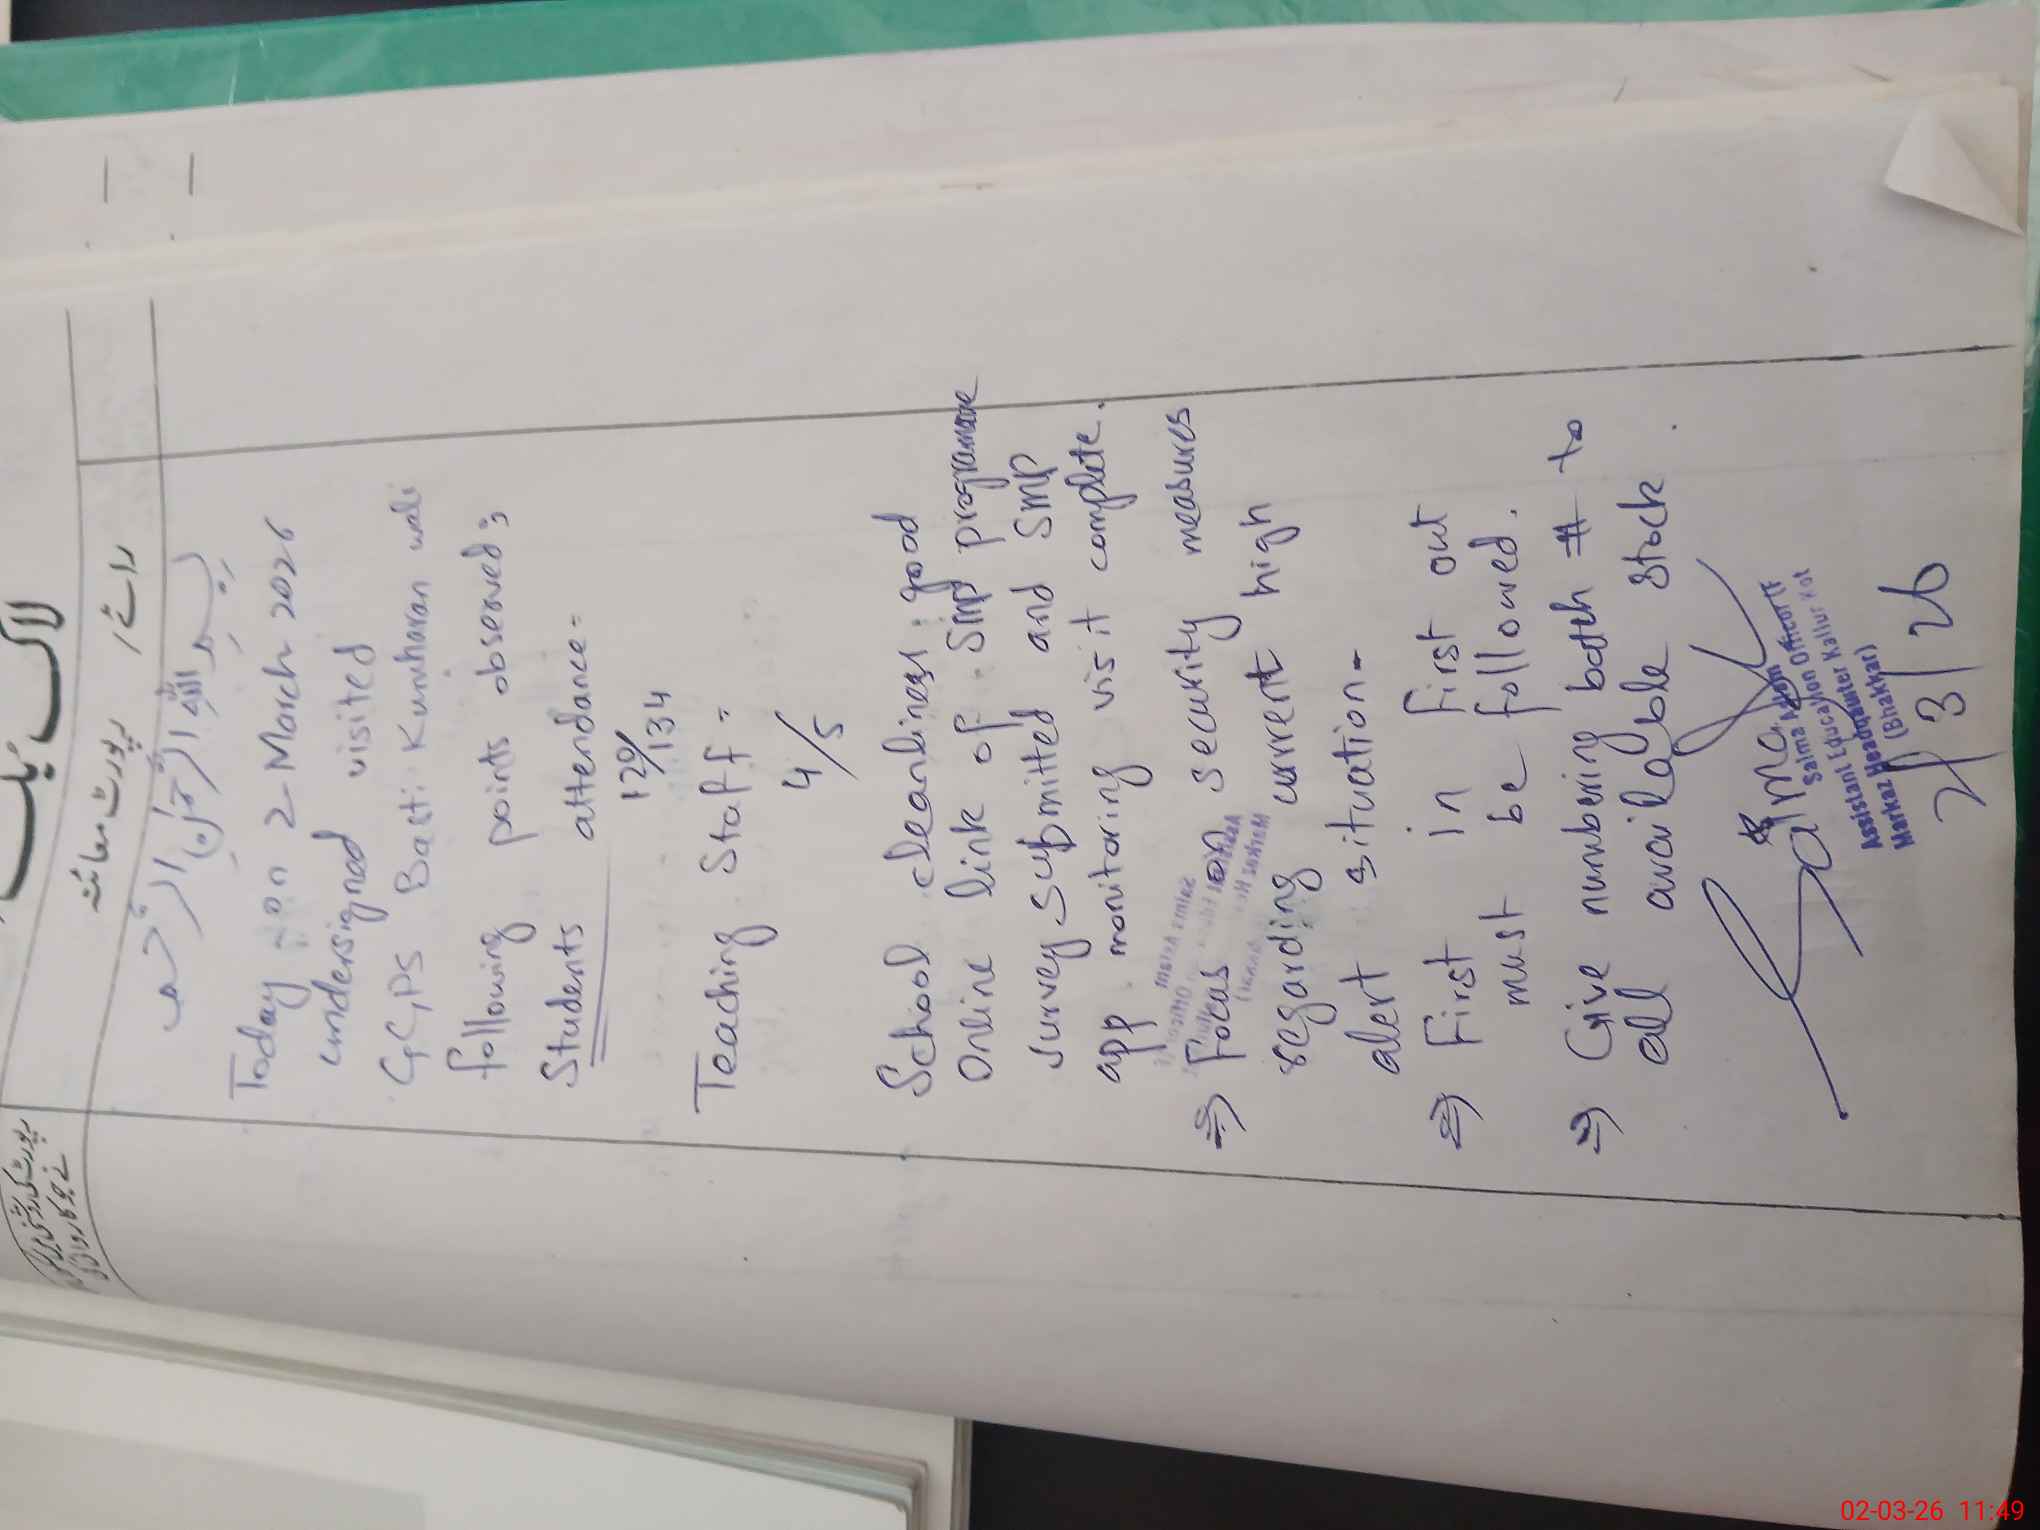 لاگ بک
رپورٹ معائنہ
بسم اللہ الرحمن الرحیم
Today on 2-March 2026
undersigned visited
GGPS Basti Kumharan wali
following points observed;
Students attendance-
120/134
Teaching Staff-
4/5
School cleanliness: good
Online link of SMP programe
survey submitted and SMP
app monitoring visit complete.
⇒ Focus on security measures
regarding current high
alert situation-
⇒ First in First out
must be followed.
⇒ Give numbering batch # to
all available stock.
Salma
Salma
Assistant Education Officer (F
Markaz Headquarter Kallur Kot
(Bhakkar)
2/3/26
02-03-26 11:49